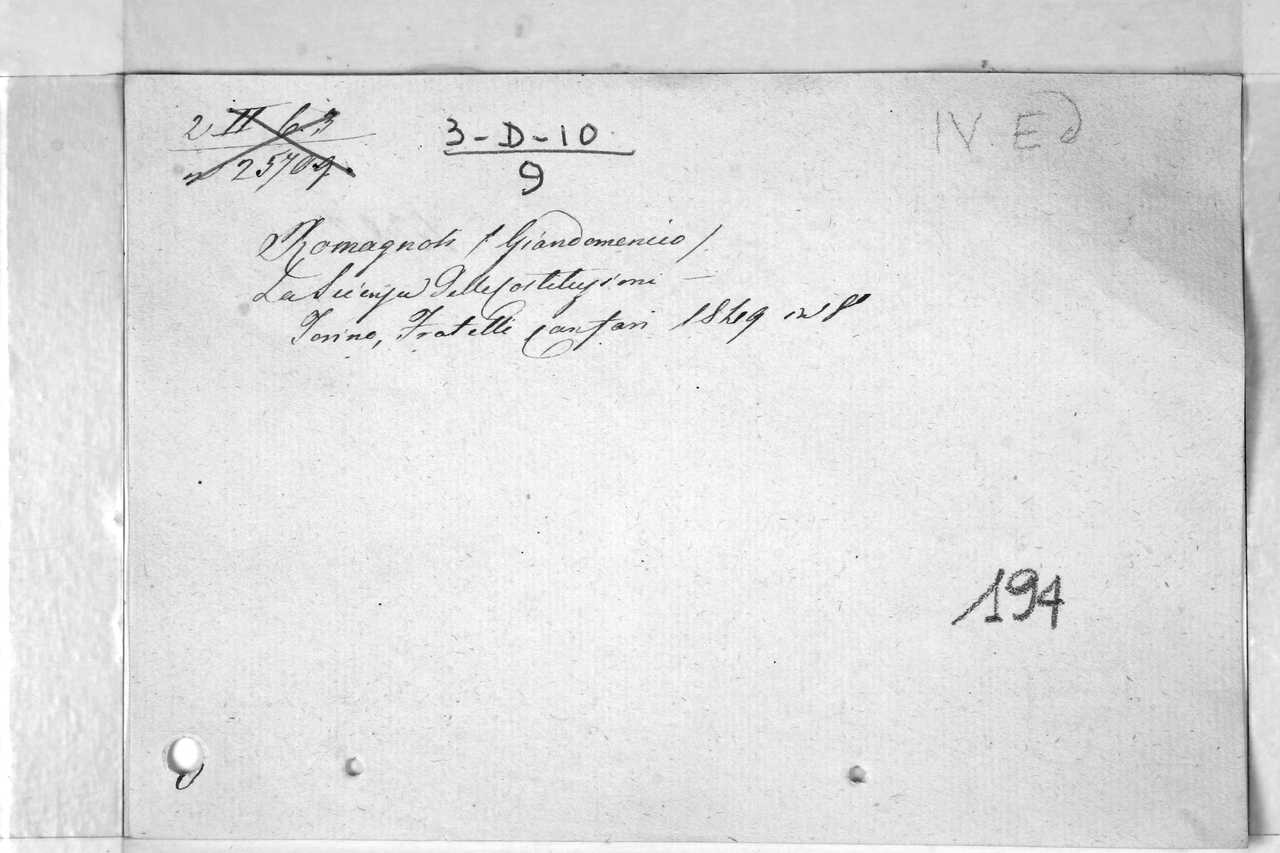 2 II 6.3
25709
3-D-10
9
IV E d
Romagnosi / Giandomenico /
La Scienza delle Costituzioni –
Torino, Fratelli Canfari 1849 in 8°
194